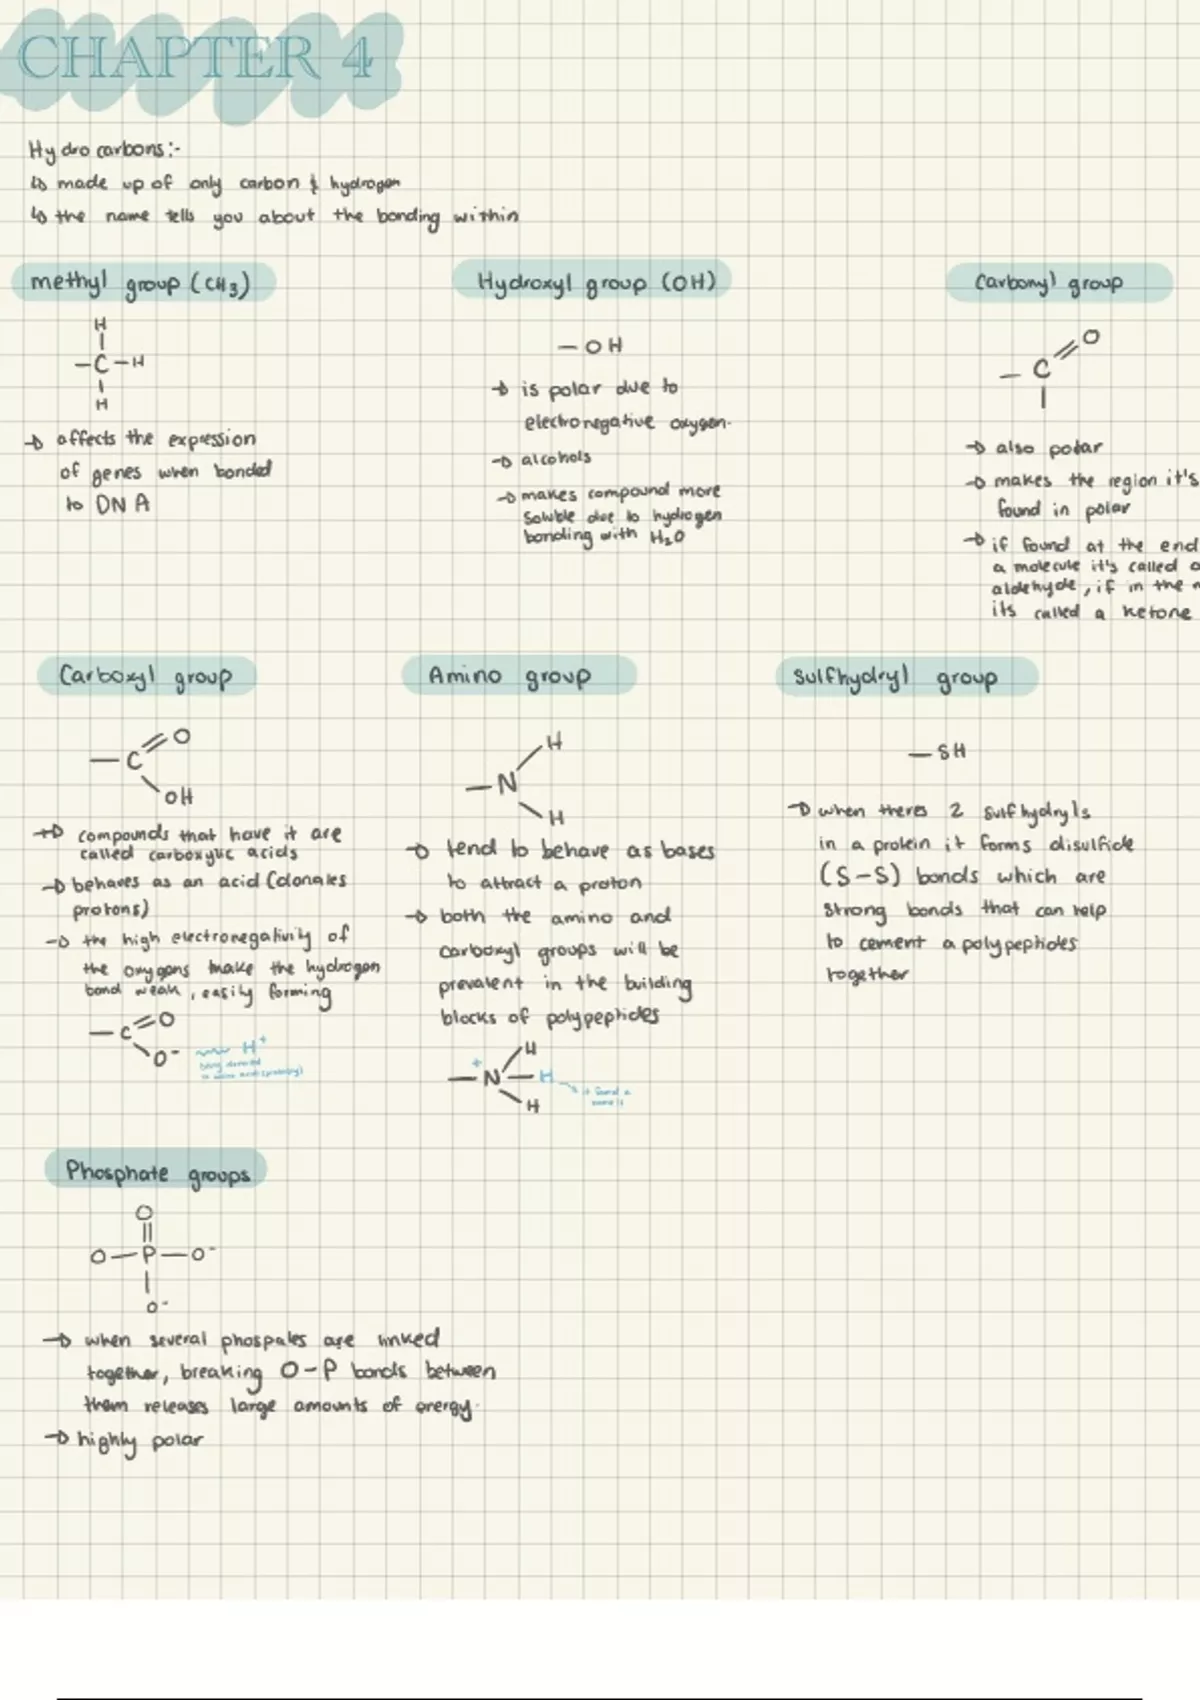 CHAPTER 4
Hydrocarbons:-
↳ made up of only carbon & hydrogen
↳ the name tells you about the bonding within
methyl group (CH3)
H
-C-H
H
→ affects the expression
of genes when bonded
to DNA
Hydroxyl group (OH)
-OH
→ is polar due to
electronegative oxygen.
→ alcohols
→ makes compound more
soluble due to hydrogen
bonding with H2O
Carbonyl group
O
-C
→ also polar
→ makes the region it's
found in polar
→ if found at the end
a molecule it's called a
aldehyde, if in the
its called a ketone
Carboxyl group
O
-C
OH
→ compounds that have it are
called carboxylic acids
→ behaves as an acid (donates
protons)
→ the high electronegativity of
the oxygens make the hydrogen
bond weak, easily forming
O
-C
O-
H+
being donated
Amino group
H
-N
H
→ tend to behave as bases
to attract a proton
→ both the amino and
carboxyl groups will be
prevalent in the building
blocks of polypeptides
H
+
-N-H
H
Sulfhydryl group
-SH
→ when theres 2 sulfhydryls
in a protein it forms disulfide
(S-S) bonds which are
strong bonds that can help
to cement a polypeptides
together
Phosphate groups
O
O-P-O-
O-
→ when several phospates are linked
together, breaking O-P bonds between
them releases large amounts of energy.
→ highly polar